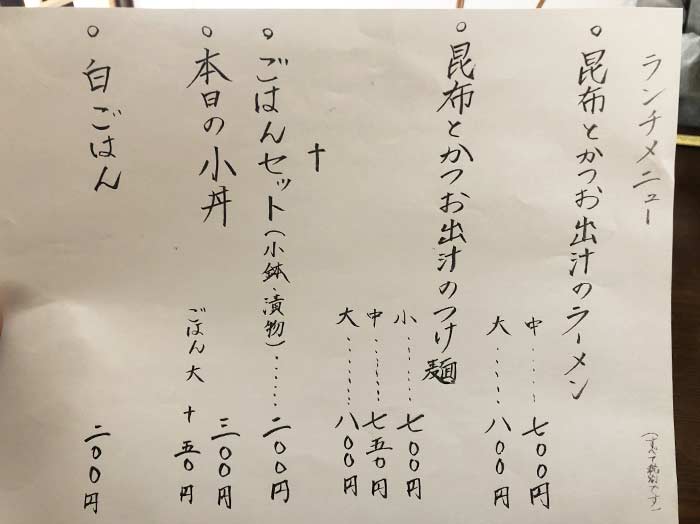 ランチメニュー
(すべて税別です)
○ 昆布とかつお出汁のラーメン
中……七〇〇円
大……八〇〇円
○ 昆布とかつお出汁のつけ麺
小……七〇〇円
中……七五〇円
大……八〇〇円
+
○ ごはんセット(小鉢・漬物)……二〇〇円
○ 本日の小丼 三〇〇円
ごはん大 +五〇円
○ 白ごはん 二〇〇円